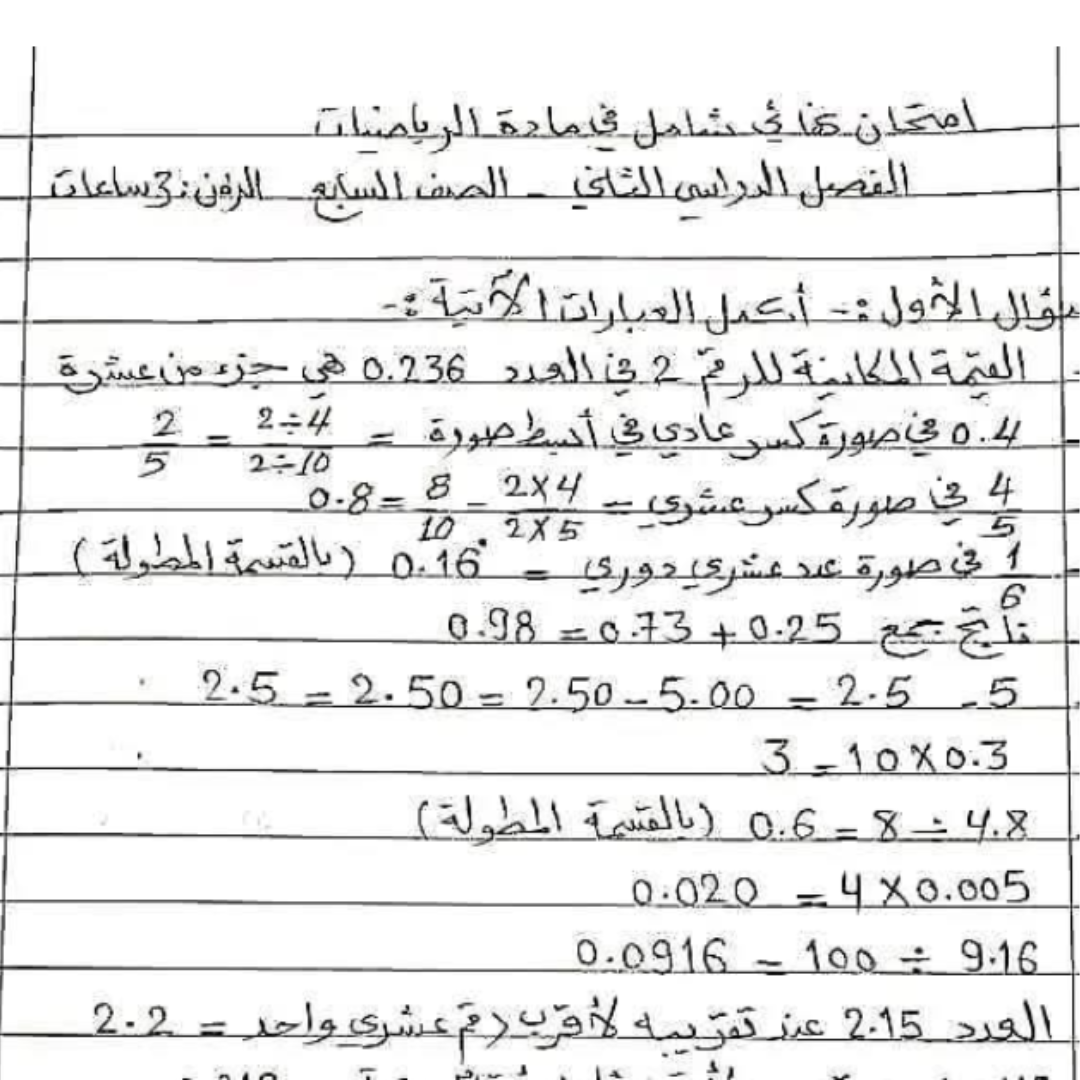 امتحان نهائي شامل في مادة الرياضيات
الفصل الدراسي الثاني - الصف السابع الزمن: 3 ساعات
سؤال الأول :- أكمل العبارات الآتية :-
القيمة المكانية للرقم 2 في العدد 0.236 هي جزء من عشرة
0.4 في صورة كسر عادي في أبسط صورة = 2÷4/2÷10 = 2/5
4/5 في صورة كسر عشري = 2×4/2×5 = 8/10 = 0.8
1/6 في صورة عدد عشري دوري = 0.16̇ (بالقسمة المطولة)
ناتج جمع 0.25 + 0.73 = 0.98
5 - 2.5 = 5.00 - 2.50 = 2.50 = 2.5
0.3 × 10 = 3
4.8 ÷ 8 = 0.6 (بالقسمة المطولة)
0.005 × 4 = 0.020
9.16 ÷ 100 = 0.0916
العدد 2.15 عند تقريبه لأقرب رقم عشري واحد = 2.2